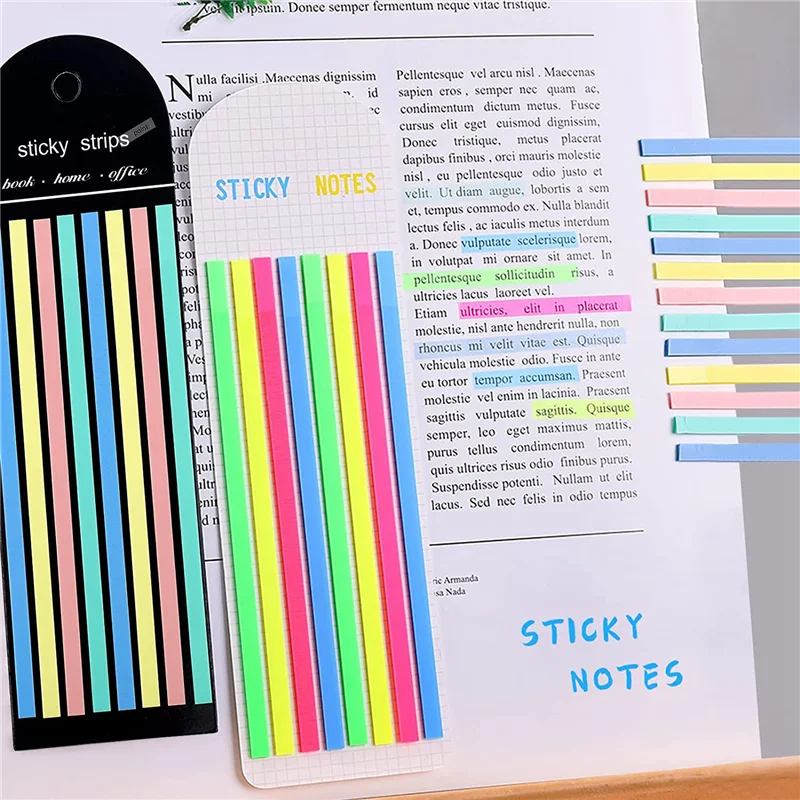 Donec semper fermentum neque vitae tristique.
sticky strips
book · home · office
STICKY NOTES
Nulla facilisi . Maecenas dignissim
Pellentesque vel arcu nisl . Maecenas
sapien eros , semper nec quam ac,
condimentum dictum metus. Fusce
cursus elit eget euismod dignissim,
Donec tristique, metus placerat
dapibus finibus , orci mauris molestie
nisl , eu pellentesque odio justo et
velit. Ut diam augue, lobortis a sem
et, tempus commodo ex. Nulla blandit
lectus felis , ac iaculis metus interdum
a. Donec vulputate scelerisque lorem,
in volutpat mi ornare sit amet. In
pellentesque sollicitudin risus, a
ultricies lacus laoreet vel.
Etiam ultricies, elit in placerat
molestie, nisl ante hendrerit nulla, non
rhoncus mi velit vitae est. Quisque
vehicula molestie odio. Fusce in ante
eu tortor tempor accumsan. Praesent
molestie vel enim in lacinia. Praesent
sagittis vulputate sagittis. Quisque
semper, leo eget maximus mattis,
purus tellus condimentum lorem,
quis ultrices risus odio finibus purus.
Suspendisse potenti. Nullam ut elit
lacus. Sed nec felis in odio tempus
Armanda
Nada
STICKY
NOTES